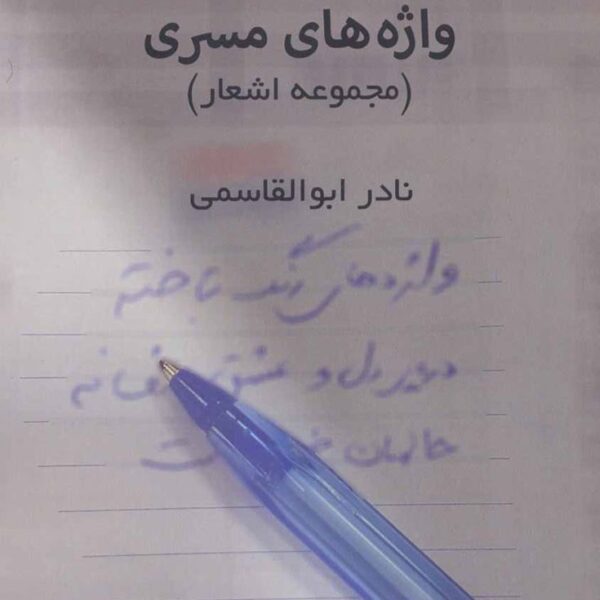 واژه های مسری
(مجموعه اشعار)
نادر ابوالقاسمی
واژه‌های رنگ باخته
دل و عشق
حالمان